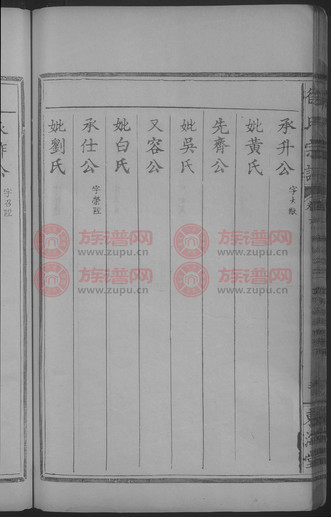 氏宗譜
東海堂
承升公
妣黃氏
先齊公
妣吳氏
又容公
妣白氏
承仕公
字榮陞
妣劉氏
族谱网
www.zupu.cn
族谱网
www.zupu.cn
族谱网
www.zupu.cn
族谱网
www.zupu.cn